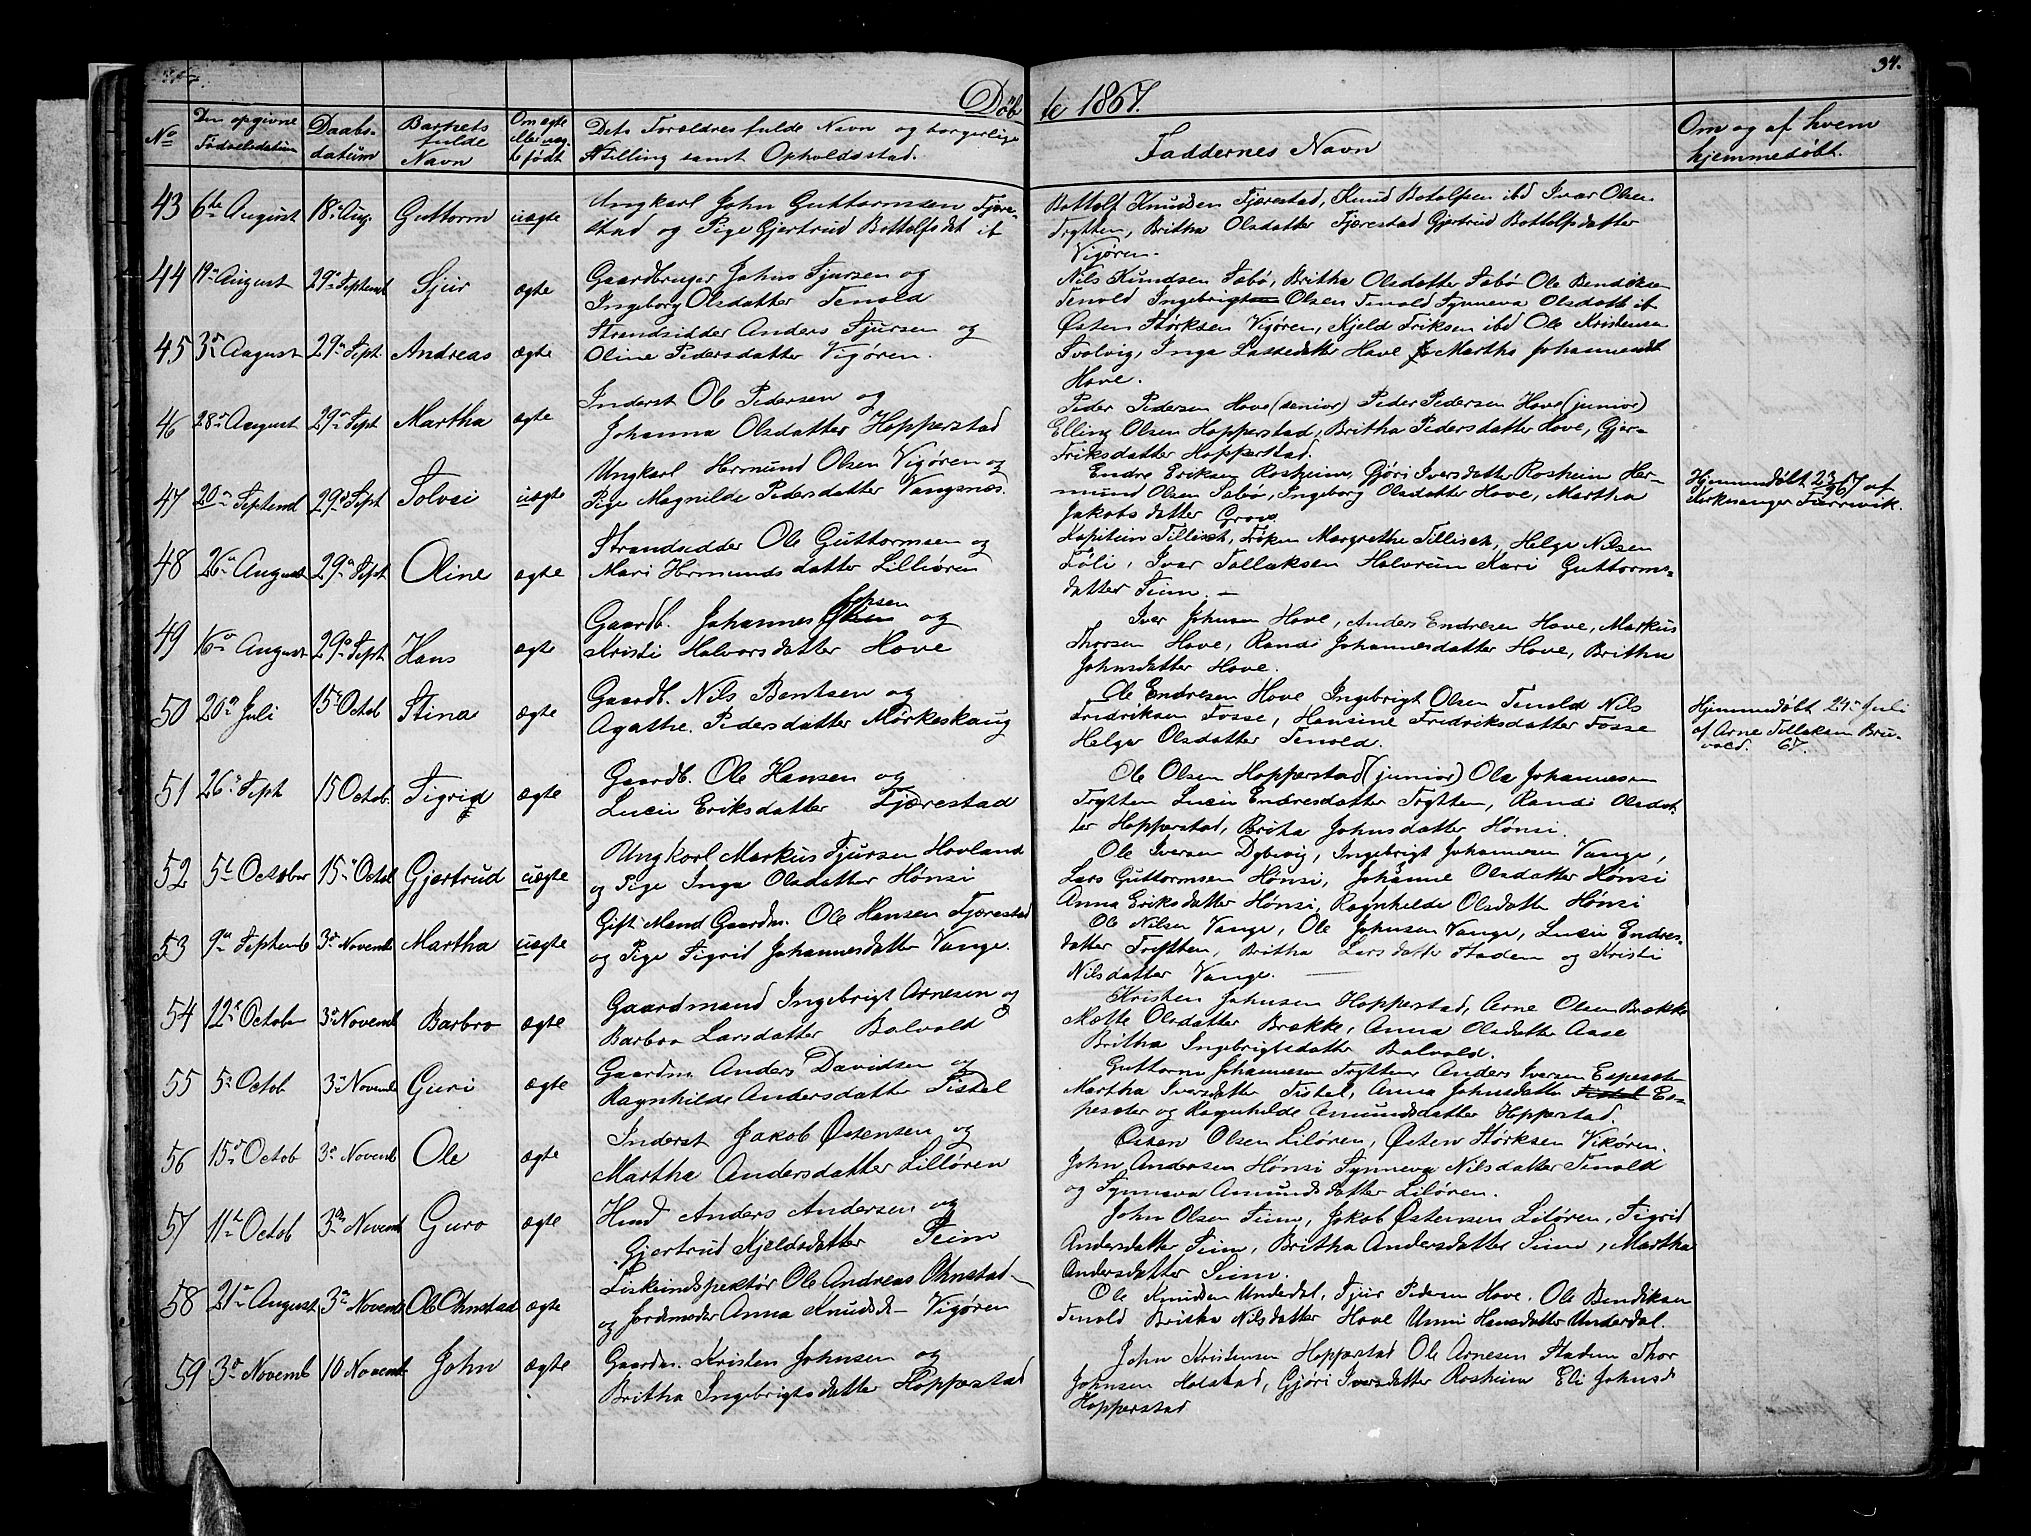 34.
Döbte 1867.
No
Den opgivne Födselsdatum
Daabsdatum
Barnets fulde Navn
Om ægte eller uægte född
Dets Forældres fulde Navn og borgerlige Stilling samt Opholdssted.
Faddernes Navn
Om og af hvem hjemmedöbt.
43 6te August 18de Aug. Guttorm uægte
Ungkarl John Guttormsen Fjærestad og Pige Gjertrud Bottolfsdet ib
Bottolf Knudsen Fjærestad, Knud Botolfsen ibd Ivar Olsen
Trytten, Britha Olsdatter Fjærestad Gjertrud Bottolfsdatter
Vigören.
44 19 August 29 Septemb Sjur ægte
Gaardbruger Johns Sjursen og
Ingeborg Olsdatter Tenold
Nils Knudsen Sabö, Britha Olsdatter Sabö Ole Bendiksen
Tenold Ingebrigt Olsen Tenold Synneva Olsdatt ib
45 3 August 29 Sept. Andreas ægte
Strandsidder Anders Sjursen og
Oline Pedersdatter Vigören.
Østen Störksen Vigören, Kjeld Eriksen ibd Ole Kristensen
Svolvig, Inga Lassedatter Hove Martha Johannesdt
Hove.
46 28 August 29 Sept Martha ægte
Inderst Ole Pedersen og
Johanna Olsdatter Hopperstad
Peder Pedersen Hove (senior) Peder Pedersen Hove (junior)
Elling Olsen Hopperstad, Britha Pedersdatter Hove, Gjer-
Eriksdatter Hopperstad.
47 20 Septemb 29 Sept Solvei uægte
Ungkarl Hermund Olsen Vigören og
Pige Magnilde Pedersdatter Vangsnes.
Endre Eriksen Rosheim, Gjöri Iversdatter Rosheim Her-
mund Olsen Sabö, Ingeborg Olsdatter Hove, Martha
Jakobsdatter Grov
Hjemmedöbt 23/9 67 af
Kirkesanger Farrevik.
48 26 August 29 Sept Oline ægte
Strandsidder Ole Guttormsen og
Mari Hermundsdatter Lilliören
Kapitein Tillisch, Fröken Margrethe Tillisch, Helge Nilsen
Föli, Ivar Tollaksen Halvrun Kari Guttorms-
datter Seim.
49 16 August 29 Sept Hans ægte
Gaardb. Johannes og
Kristi Halvorsdatter Hove
Iver Johnsen Hove, Anders Endresen Hove, Markus
Thorsen Hove, Randi Johannesdatter Hove, Britha
Johnsdatter Hove.
50 20 Juli 15 Octob Stina ægte
Gaardb. Nils Bentsen og
Agathe Pedersdatter Mörkeskaug
Ole Endresen Hove Ingebrigt Olsen Tenold Nils
Fredriksen Fosse, Hansine Fredriksdatter Fosse
Helge Olsdatter Tenold.
Hjemmedöbt 24 Juli
af Arne Tillaksen Bru-
vold. 67
51 26 Sept 15 Octob. Sigrid ægte
Gaardb. Ole Hansen og
Lucie Eriksdatter Fjærestad
Ole Olsen Hopperstad (junior) Ole Johannesen
Trytten Lucie Endresdatter Trytten, Randi Olsdat-
ter Hopperstad, Brita Johnsdatter Hönsi.
52 5t October 15 Octob Gjertrud uægte
Ungkarl Markus Sjursen Hovland
og Pige Inga Olsdatter Hönsi
Ole Iversen Dybvig, Ingebrigt Johannesen Vange,
Lars Guttormsen Hönsi, Johanne Olsdatter Hönsi
Anna Eriksdatter Hönsi, Ragnhilde Olsdatter Hönsi
53 9 Septemb 3 Novemb Martha uægte
Gift Mand Gaardm. Ole Hansen Fjærestad
og Pige Sigrid Johannesdatter Vange.
Ole Nilsen Vange, Ole Johnsen Vange, Lucie Endres-
datter Trytten, Britha Larsdatter Stadem og Kristi
Nilsdatter Vange.
54 12 Octob 3 Novemb Barbro ægte
Gaardmand Ingebrigt Arnesen og
Barbro Larsdatter Bolvold
Kristen Johnsen Hopperstad, Arne Olsen Brække
Mætte Olsdatter Brække, Anna Olsdatter Aase
Britha Ingebrigtsdatter Bolvold.
55 5 Octob 3 Novemb Guri ægte
Gaardm Anders Davidsen og
Ragnhilde Andersdatter Fistel
Guttorm Johannesen Trytten Anders Iversen Espeseter
Martha Iversdatter Fistel, Anna Johnsdatter Fistel Es-
peseter og Ragnhilde Amundsdatter Hopperstad.
56 15 Octob 3 Novemb Ole ægte
Inderst Jakob Østensen og
Martha Andersdatter Lillören
Østen Olsen Lilören, Østen Störksen Vikören.
John Andersen Hönsi Synneva Nilsdatter Tenold
og Synneva Amundsdatter Lilören.
57 11te Octob 3 Novemb Guro ægte
Husd Anders Andersen og
Gjertrud Kjeldsdatter Seim
John Olsen Seim, Jakob Østensen Lilören, Sigrid
Andersdatter Seim, Britha Andersdatter Seim, Martha
Andersdatter Seim.
58 21 August 3 Novemb Ole Ohnstad ægte
Fiskeindspektör Ole Andreas Ohnstad
og Jordmoder Anna Knudsd- Vigören
Ole Knudsen Underdal, Sjur Pedersen Hove. Ole Bendiksen
Tenold Britha Nilsdatter Hove Unni Hansdatter Underdal.
59 3 Novemb 10 Novemb John ægte
Gaardm. Kristen Johnsen og
Britha Ingebrigtsdatter Hopperstad
John Kristensen Hopperstad Ole Arnesen Stadem Thor
Johnsen Holstad, Gjöri Iversdatter Rosheim Eli Johnsd
Hopperstad